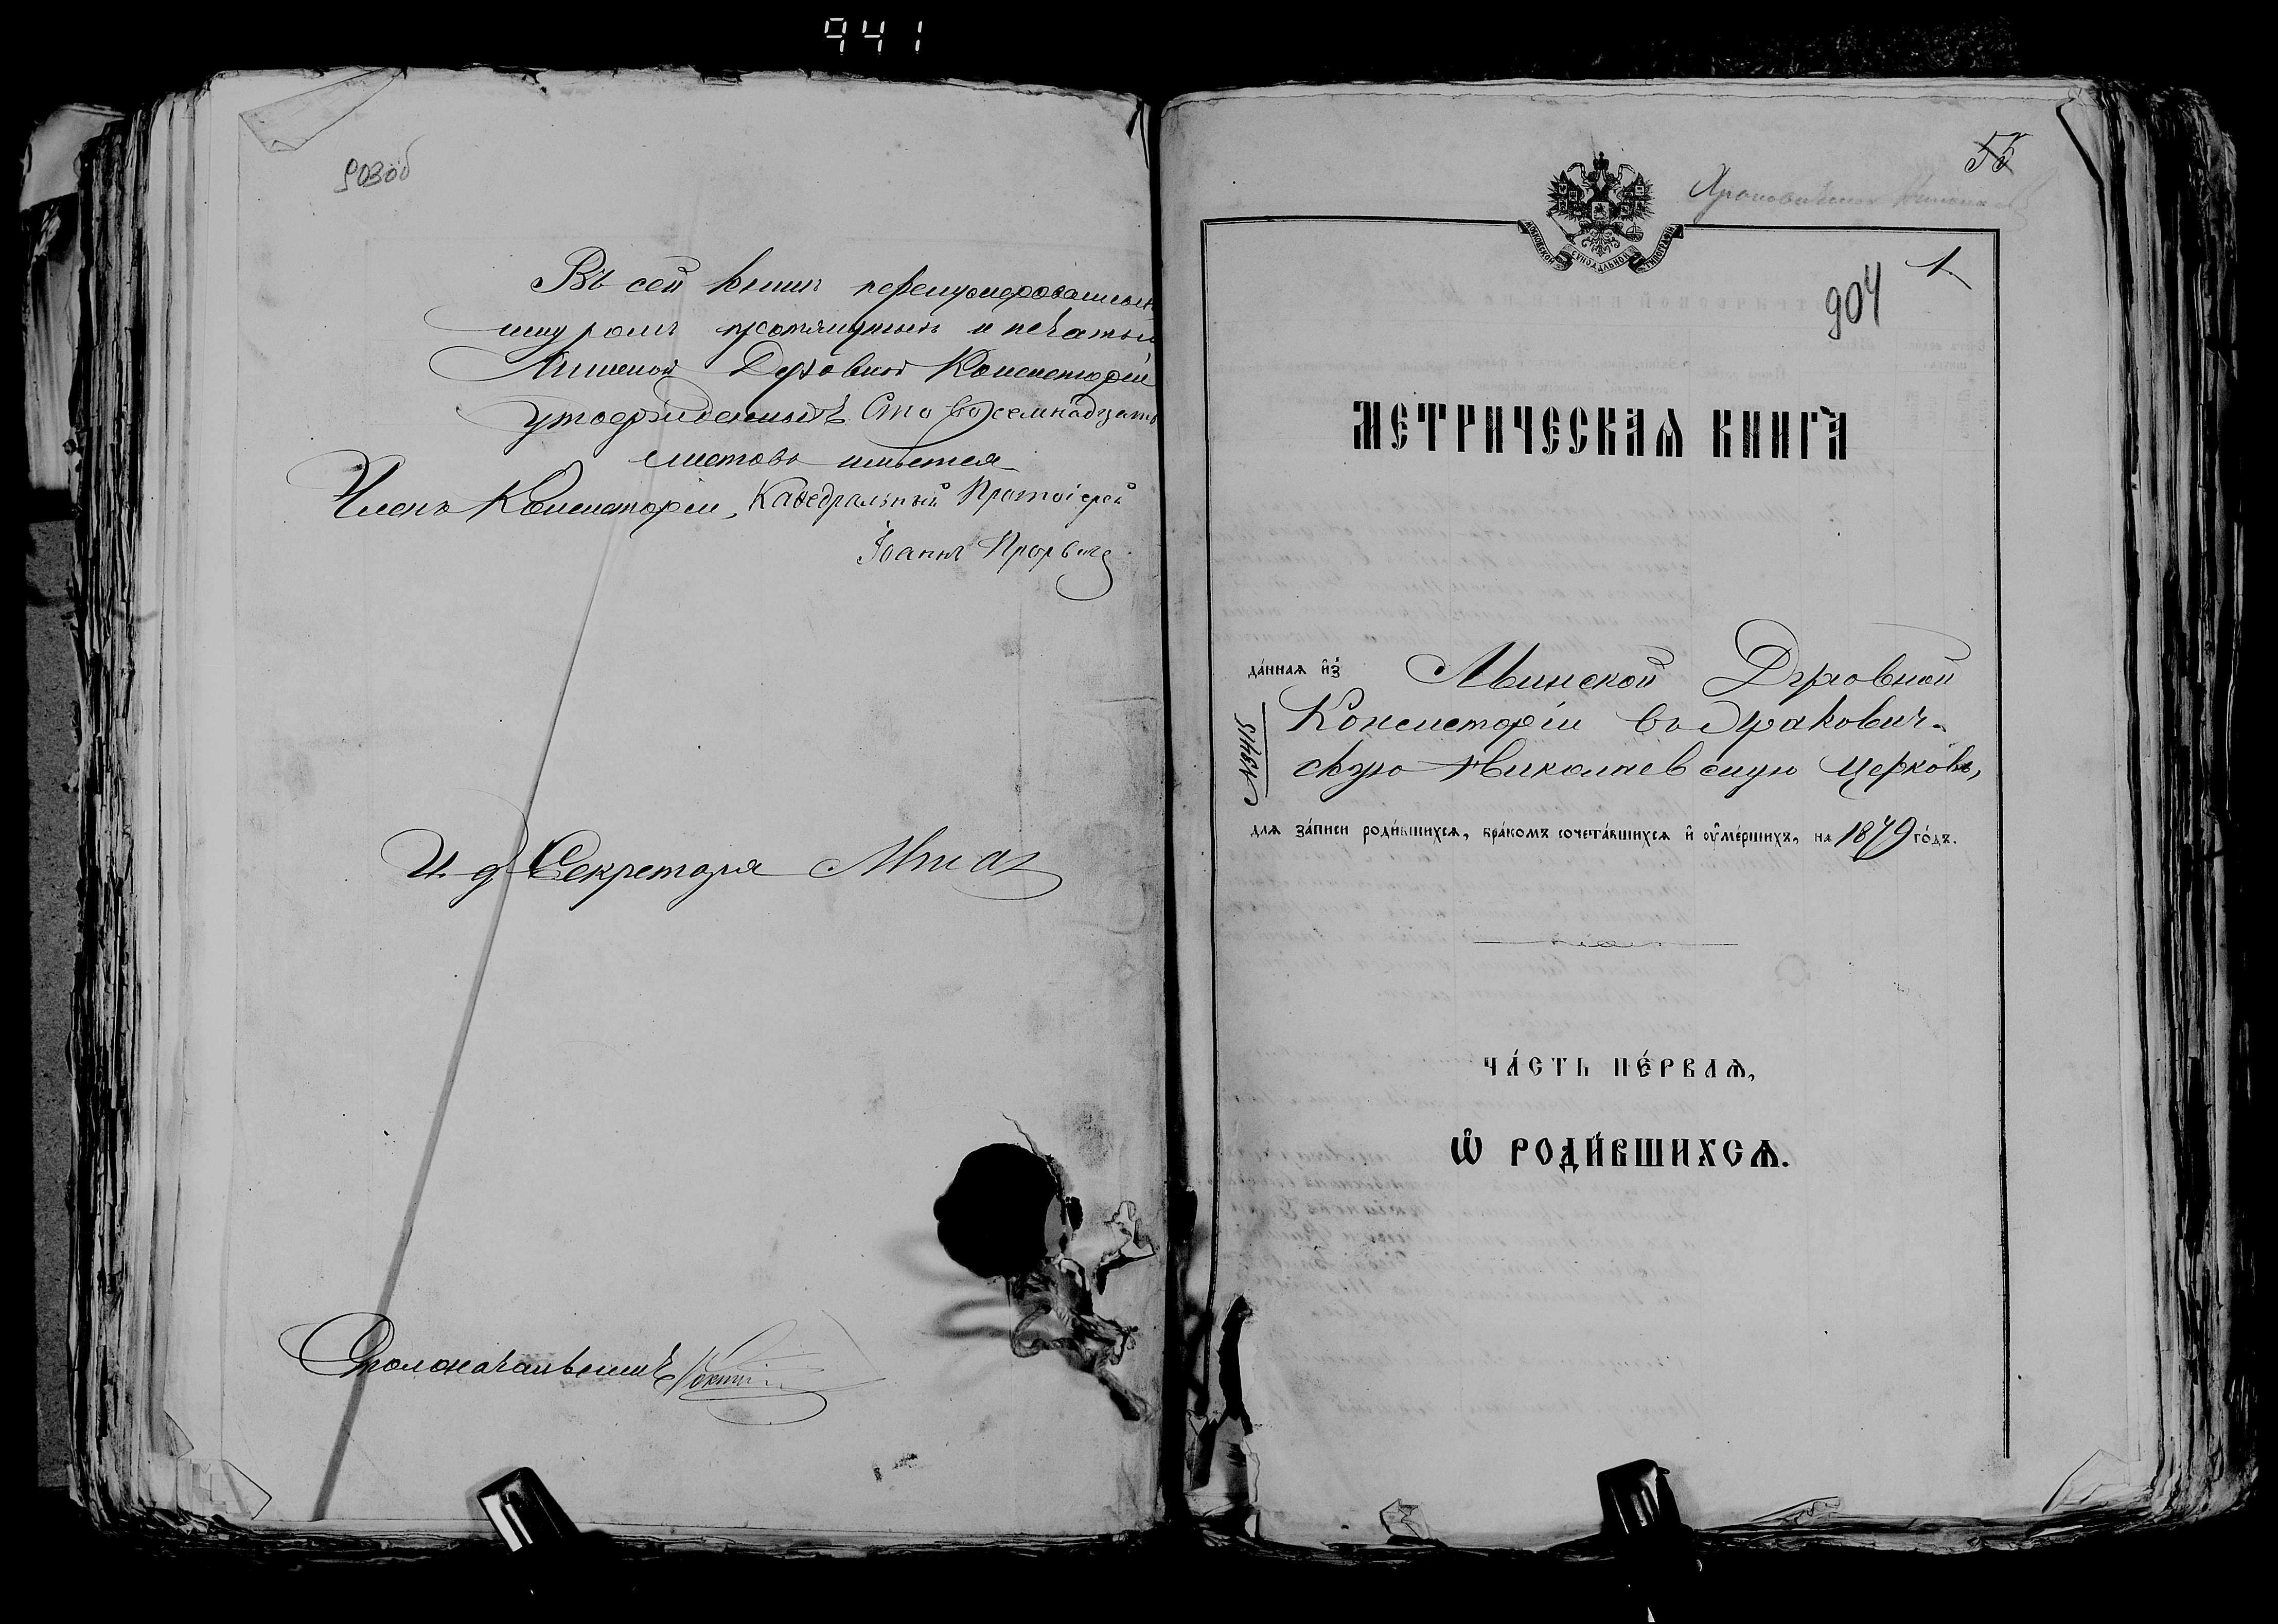 941
903об
Въ сей книгѣ перенумерованныхъ
шнуромъ протянутыхъ и печатью
Минской Духовной Консисторіи
утвержденныхъ Сто восемнадцать
листовъ имѣется
Членъ Консисторіи, Каѳедральный Протоіерей
Іоаннъ
И. д. Секретаря
Столоначальникъ
55
МОСКОВСКОЙ СѴНОДАЛЬНОЙ ТИПОГРАФІИ
1
904
МЕТРИЧЕСКАѦ КНИГА
да́ннаѧ и҆з̾ Минской Духовной
Консисторіи въ Храковичскую
Николаевскую церковь,
№13415
для за́писи роди́вшихсѧ, бра́комъ сочета́вшихсѧ и҆ ᲂу҆ме́ршихъ, на 1879 го́дъ.
ЧА́СТЬ ПЕ́РВАѦ,
Ѽ РОДИ́ВШИХСѦ.